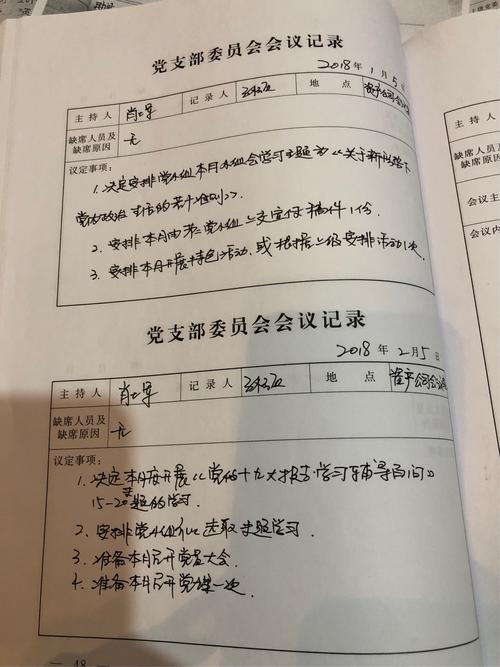 党支部委员会会议记录
2018 年 1 月 5 日
主 持 人 肖 军 记 录 人 地 点 资产公司会议室
缺席人员及
缺席原因 无
议定事项：
1. 决定安排党小组本月小组会学习主题为《关于新形势下
党内政治生活的若干准则》。
2. 安排本月由第三党小组上交宣传稿件1份.
3. 安排本月开展特色活动, 或根据上级安排活动1次.
党支部委员会会议记录
2018 年 2 月 5 日
主 持 人 肖 军 记 录 人 地 点 资产公司会议室
缺席人员及
缺席原因 无
议定事项：
1. 决定本月度开展《党的十九大报告学习辅导百问》
15-20 题的学习.
2. 安排党小组 选取 题学习.
3. 准备本月召开党员大会.
4. 准备本月开党课一次.
— 48
主持
缺席
缺席
会议主
会议内